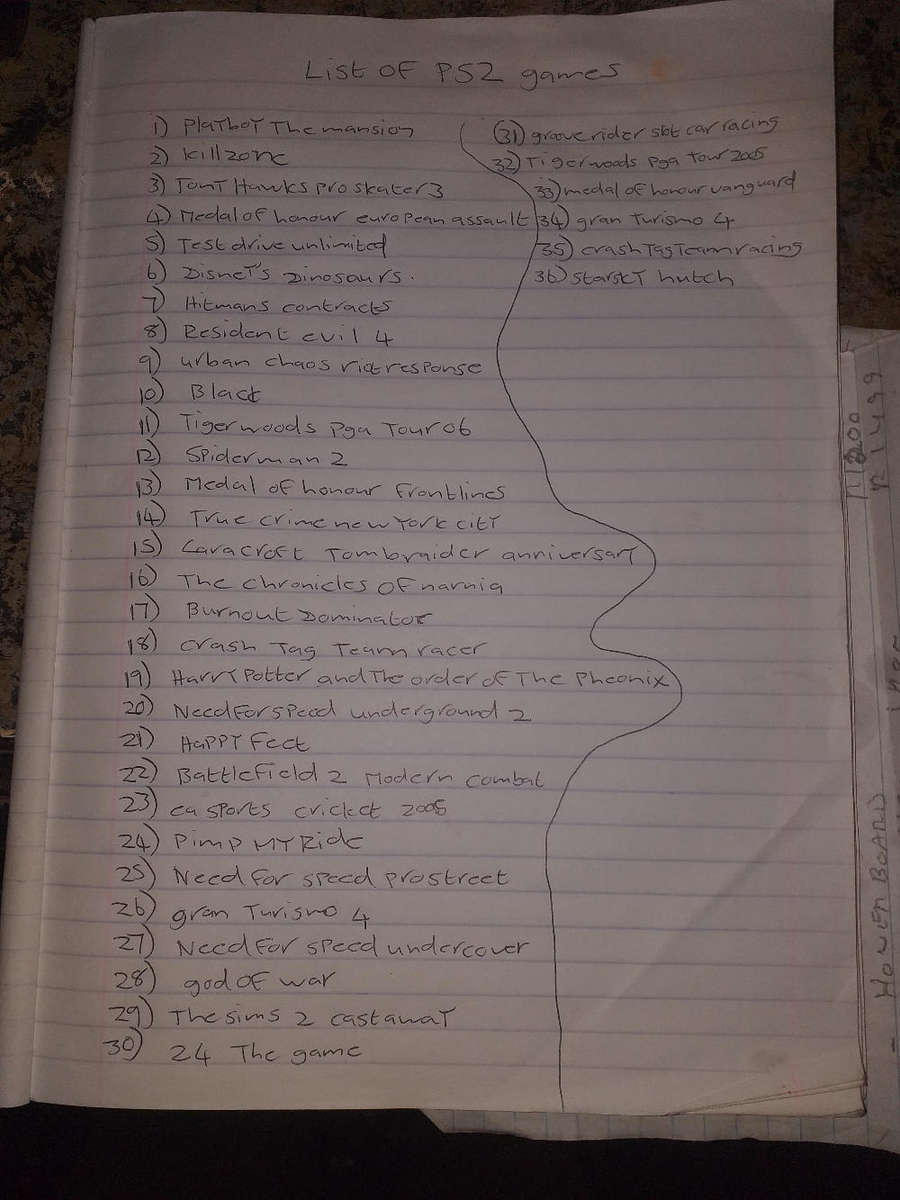 List OF PS2 games
1) PlaYboY The mansion
2) Killzone
3) TonY Hawks pro skater 3
4) Medal of honour european assault
5) Test drive unlimited
6) DisneY's Dinosaurs.
7) Hitmans contracts
8) Resident evil 4
9) urban chaos riot response
10) Black
11) Tiger woods pga Tour 06
12) Spiderman 2
13) Medal of honour frontlines
14) True crime new York citY
15) Lara croft Tombraider anniversarY
16) The chronicles of narnia
17) Burnout Dominator
18) crash Tag Team racer
19) HarrY Potter and The order of The Pheonix
20) Need For speed underground 2
21) HaPPY Feet
22) Battlefield 2 Modern combat
23) ea sports cricket 2005
24) Pimp MY Ride
25) Need for speed prostreet
26) gran Turismo 4
27) Need For speed undercover
28) god OF war
29) The sims 2 castawaY
30) 24 The game
(31) groove rider slot car racing
32) Tiger woods pga Tour 2005
33) medal of honour vanguard
34) gran Turismo 4
35) crash Tag Team racing
36) starskY hutch
R 1499
- HOVEN BOARD